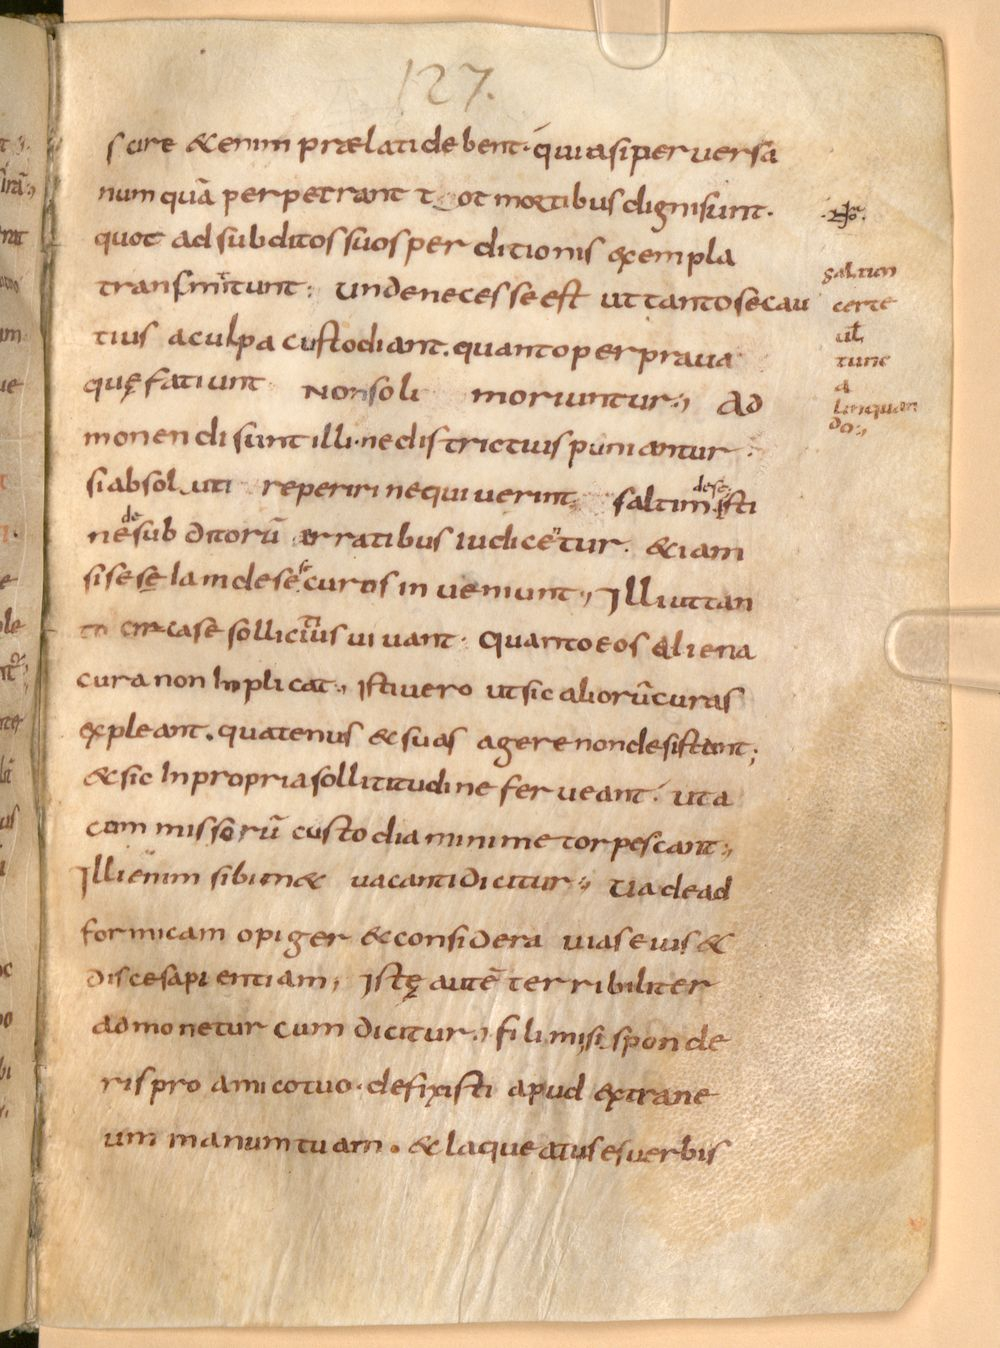 127.
scire &enim prælati debent· quia si perversā
num quā perpetrant tot mortibus digni sunt·
quot ad subditos suos perditionis exempla
transmittunt; unde necesse est ut tanto se cau
tius a culpa custodiant. quanto per prava
quę fatiunt Non soli moriuntur; Ad
monendi sunt illi· ne districtius puniantur·
si absoluti reperiri nequiverint; saltim isti
de se
ne de subditorū erratibus iudicetur· &iam
si se sę lam de se securos inveniunt; Illi ut tan
to circa se sollicitius vivant· quanto eos aliena
cura non Inplicat; isti vero ut sic aliorū curas
expleant. quatenus & suas agere non desistant;
& sic In propria sollititudine ferveant· ut a
commissorū custodia minime torpescant;
Illi enim sibim& vacanti dicitur; Uade ad
formicam o piger & considera vias eius &
disce sapientiam; Istę autē terribiliter
admonetur cum dicitur; fili mi si sponde
ris pro amico tuo· defixisti apud extrane
um manum tuam. & laqueatus es verbis
saltim
certe
ul
tunc
a
linquan
do;